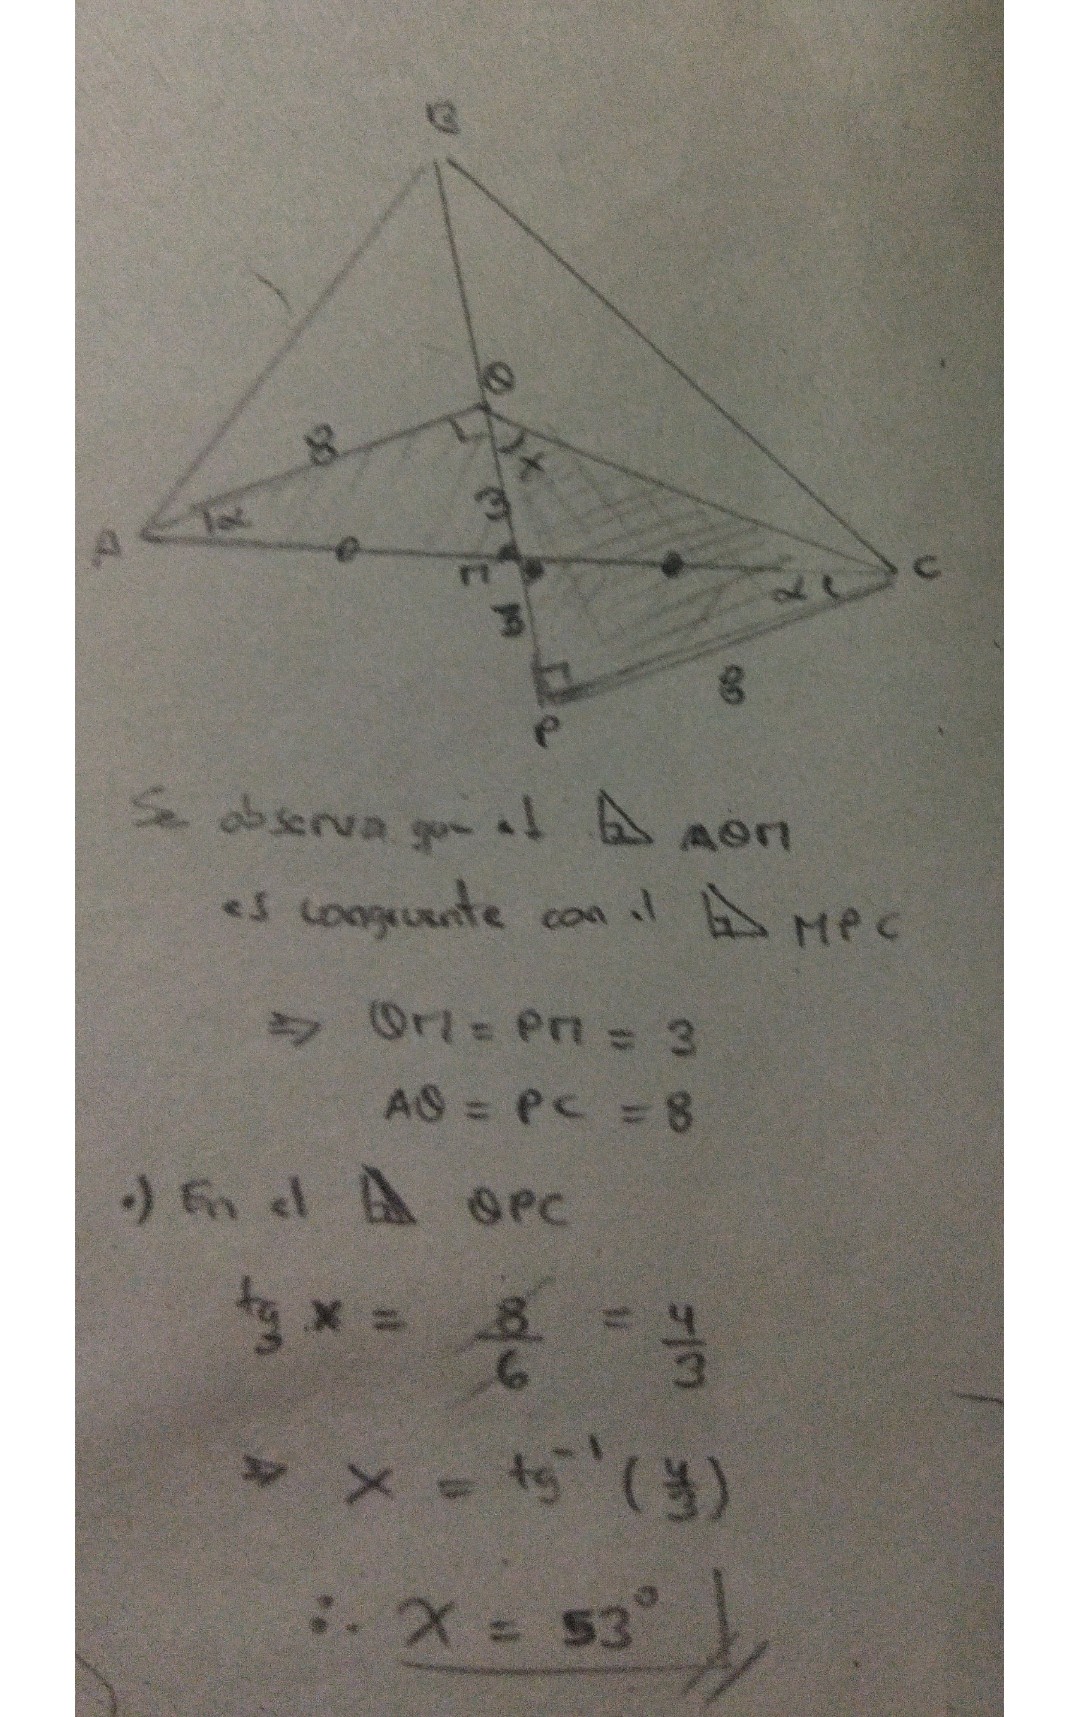 B
Q
8
x
α
3
A
M
C
α
3
8
P
Se observa que el AQM
es congruente con el MPC
⇒ QM = PM = 3
AQ = PC = 8
•) En el QPC
tg x = 8/6 = 4/3
⇒ x = tg⁻¹ (4/3)
∴ x = 53°